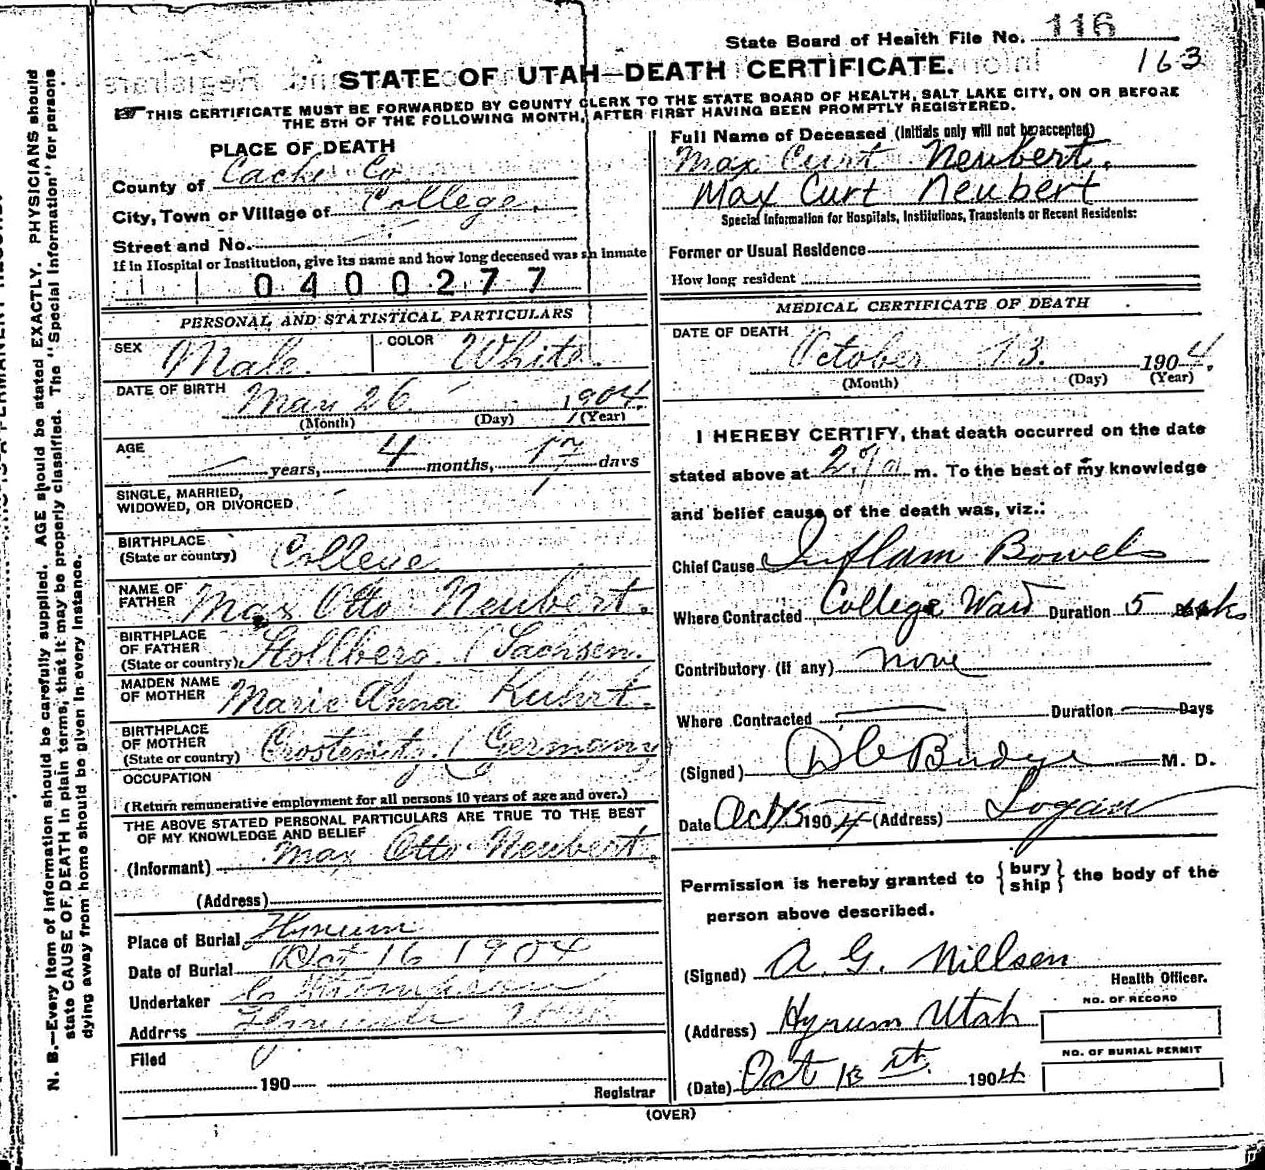 State Board of Health File No. 116
163
STATE OF UTAH—DEATH CERTIFICATE.
THIS CERTIFICATE MUST BE FORWARDED BY COUNTY CLERK TO THE STATE BOARD OF HEALTH, SALT LAKE CITY, ON OR BEFORE
THE 5TH OF THE FOLLOWING MONTH, AFTER FIRST HAVING BEEN PROMPTLY REGISTERED.
PLACE OF DEATH
County of Cache Co
City, Town or Village of College.
Street and No.
If in Hospital or Institution, give its name and how long deceased was an inmate
0400277
PERSONAL AND STATISTICAL PARTICULARS
SEX Male. COLOR White.
DATE OF BIRTH May 26 1904
(Month) (Day) (Year)
AGE — years, 4 months, 17 days
SINGLE, MARRIED,
WIDOWED, OR DIVORCED
BIRTHPLACE
(State or country) College.
NAME OF
FATHER Max Otto Neubert.
BIRTHPLACE
OF FATHER
(State or country) Stollberg. (Sachsen.
MAIDEN NAME
OF MOTHER Marie Anna Kuhrt.
BIRTHPLACE
OF MOTHER
(State or country) Crostewitz. (Germany
OCCUPATION
(Return remunerative employment for all persons 10 years of age and over.)
THE ABOVE STATED PERSONAL PARTICULARS ARE TRUE TO THE BEST
OF MY KNOWLEDGE AND BELIEF
(Informant) Max Otto Neubert.
(Address)
Place of Burial Hyrum
Date of Burial Oct 16 1904
Undertaker
Address
Filed
190
Registrar
Full Name of Deceased (Initials only will not be accepted)
Max Curt Neubert.
Max Curt Neubert
Special Information for Hospitals, Institutions, Transients or Recent Residents:
Former or Usual Residence
How long resident
MEDICAL CERTIFICATE OF DEATH
DATE OF DEATH
October 13. 1904.
(Month) (Day) (Year)
I HEREBY CERTIFY, that death occurred on the date
stated above at m. To the best of my knowledge
and belief cause of the death was, viz.:
Chief Cause Inflam Bowels
Where Contracted College Ward Duration 5 wks
Contributory (if any) none
Where Contracted — Duration — Days
(Signed) D C Budge M. D.
Date Oct 15 1904 (Address) Logan
Permission is hereby granted to {bury ship} the body of the
person above described.
(Signed) A. G. Nillsen
Health Officer.
(Address) Hyrum Utah
NO. OF RECORD
NO. OF BURIAL PERMIT
(Date) Oct 1904
(OVER)
N. B.—Every item of information should be carefully supplied. AGE should be stated EXACTLY. PHYSICIANS should
state CAUSE OF DEATH in plain terms, that it may be properly classified. The "Special Information" for persons
dying away from home should be given in every instance.